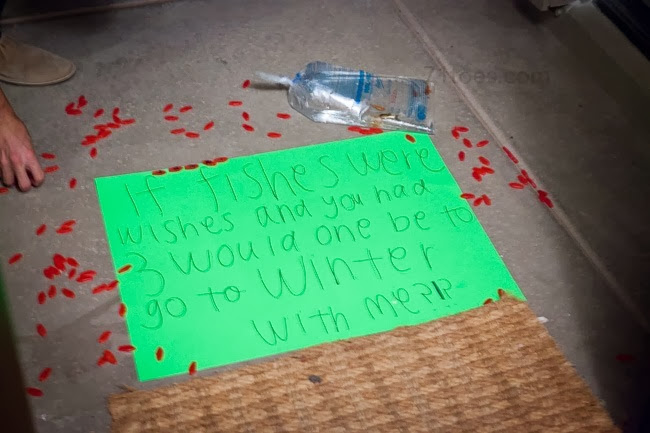 71toes.com
If fishes were
wishes and you had
3 would one be to
go to Winter
with me?!?